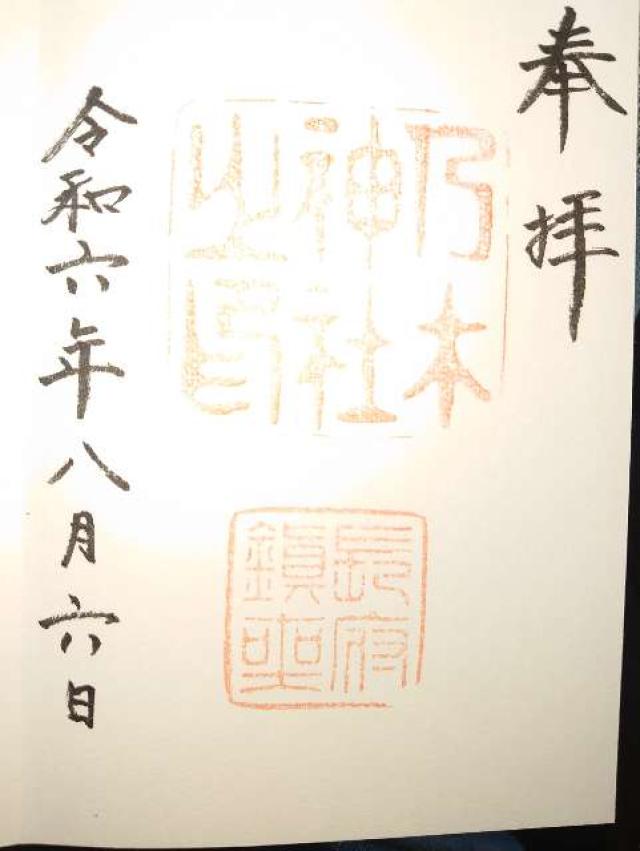 奉拝
乃木
神社
之印
長府
鎮座
令和六年八月六日